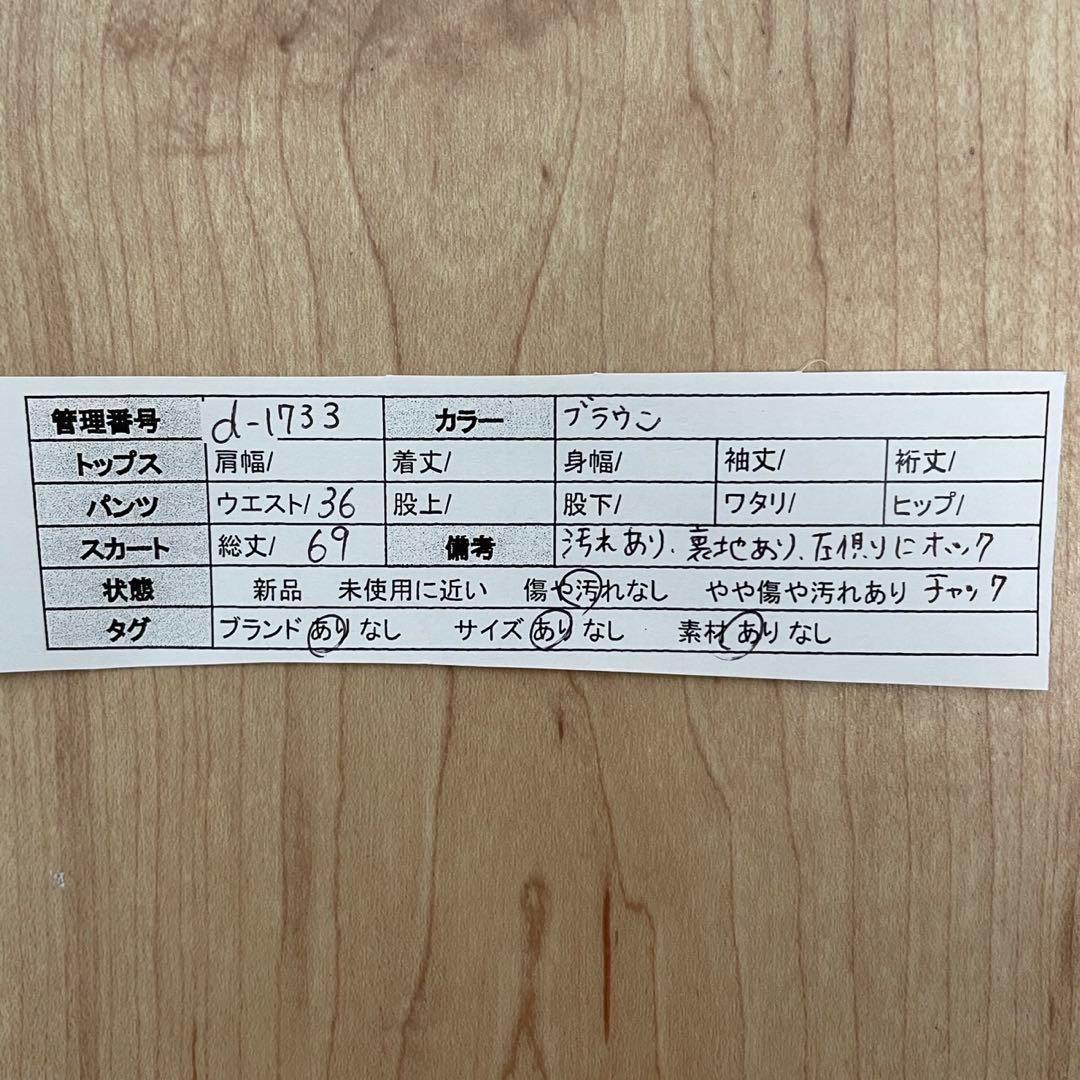 管理番号 d-1733 カラー ブラウン
トップス 肩幅/ 着丈/ 身幅/ 袖丈/ 裄丈/
パンツ ウエスト/ 36 股上/ 股下/ ワタリ/ ヒップ/
スカート 総丈/ 69 備考 汚れあり、裏地あり、左側りにホック
状態 新品 未使用に近い 傷や汚れなし やや傷や汚れあり チャック
タグ ブランド あり なし サイズ あり なし 素材 あり なし